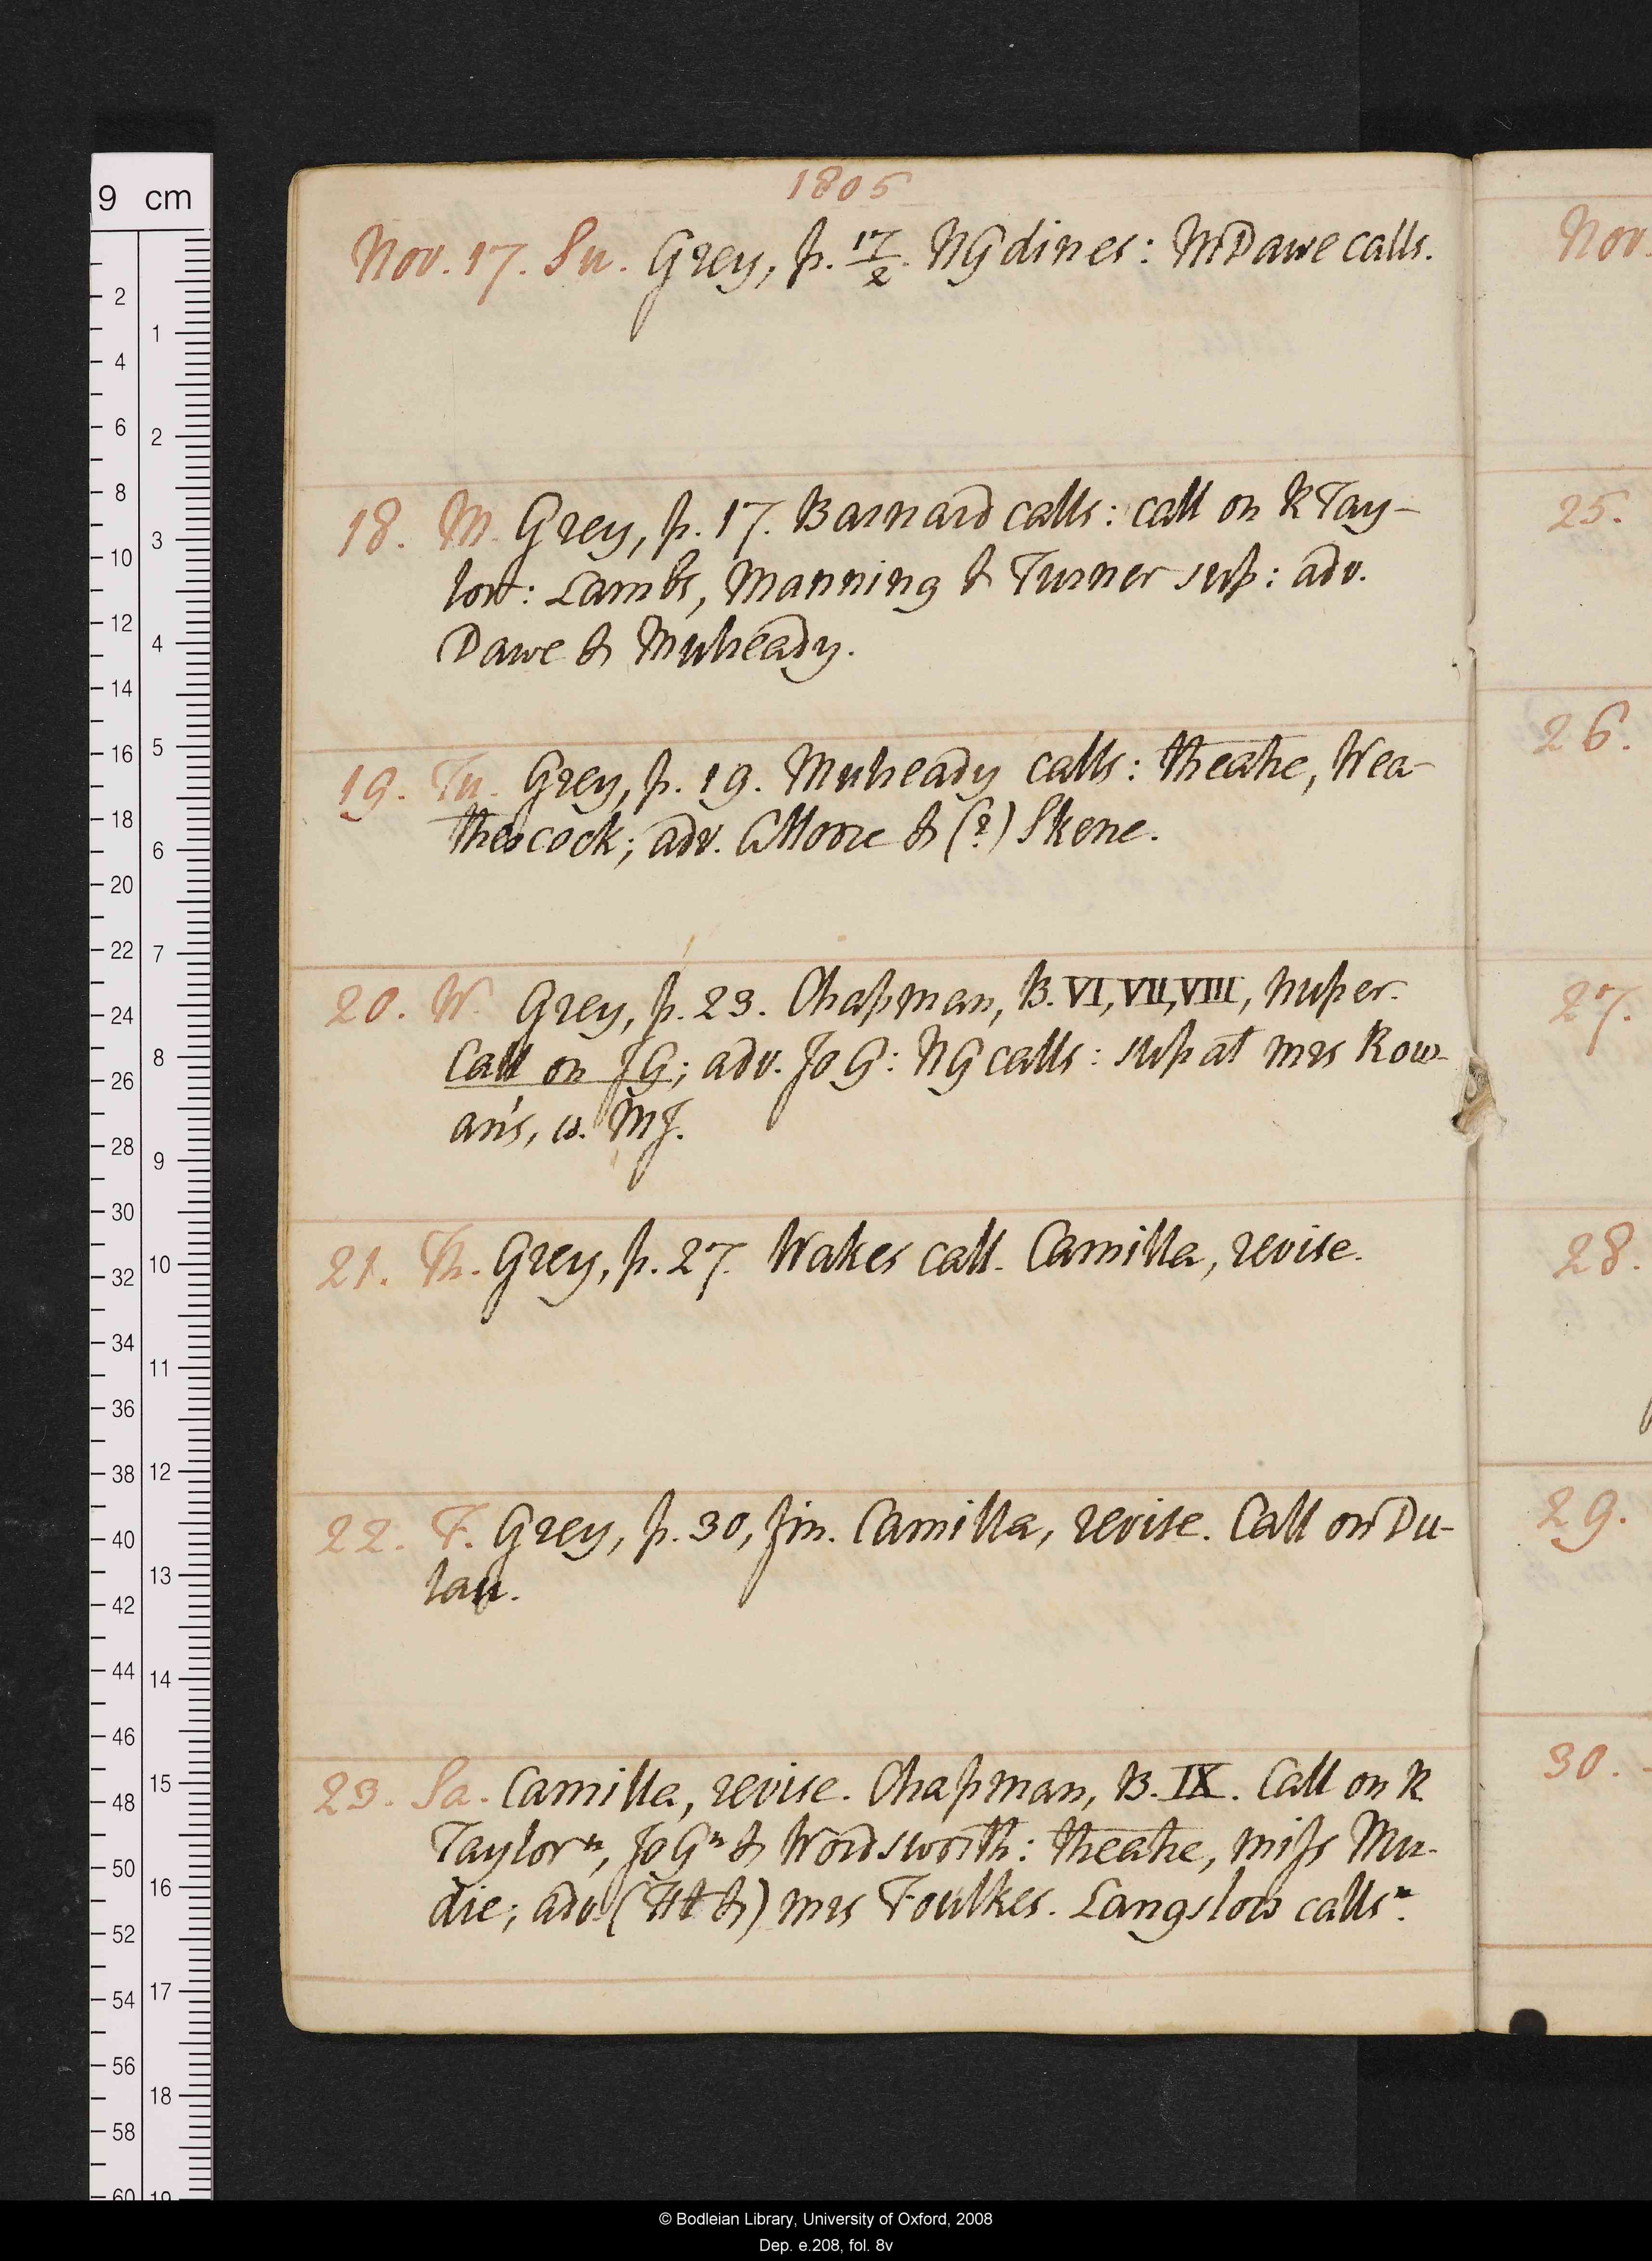 1805
Nov. 17. Su. Grey, p. 17/2. NG dines: M Dawe calls.
18. M. Grey, p. 17. Barnard calls: call on R Tay-
lor: Lambs, Manning & Turner sup: adv.
Dawe & Mulready.
19. Tu. Grey, p. 19. Mulready calls: theatre, Wea-
thercock; adv. G Moore & (?) Skene.
20. W. Grey, p. 23. Chapman, B. VI, VII, VIII, nuper.
Call on JG; adv. Jo G: NG calls: sup at mrs Row-
an's, w. MJ.
21. Th. Grey, p. 27. Wakes call. Camilla, revise.
22. F. Grey, p. 30, fin. Camilla, revise. Call on Du-
lau.
23. Sa. Camilla, revise. Chapman, B. IX. Call on R
Taylor n, Jo G n & Wordsworth: theatre, miss Mu-
die; adv. (Ht &) mrs Foulkes. Langslow calls n.
Nov.
25.
26.
27.
28.
29.
30.
9 cm
2
4
6
8
10
12
14
16
18
20
22
24
26
28
30
32
34
36
38
40
42
44
46
48
50
52
54
56
58
60
1
2
3
4
5
6
7
8
9
10
11
12
13
14
15
16
17
18
19
© Bodleian Library, University of Oxford, 2008
Dep. e.208, fol. 8v